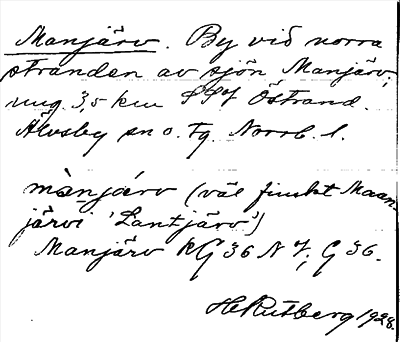 Manjärv. By vid norra
stranden av sjön Manjärv,
ung. 3,5 km SSO Östrand.
Älvsby sn o. tg. Norrb. l.
mànjärv (väl finskt Maan-
järvi 'Lantjärv')
Manjärv kG 36 N 7, G 36.
H Rutberg 1928.